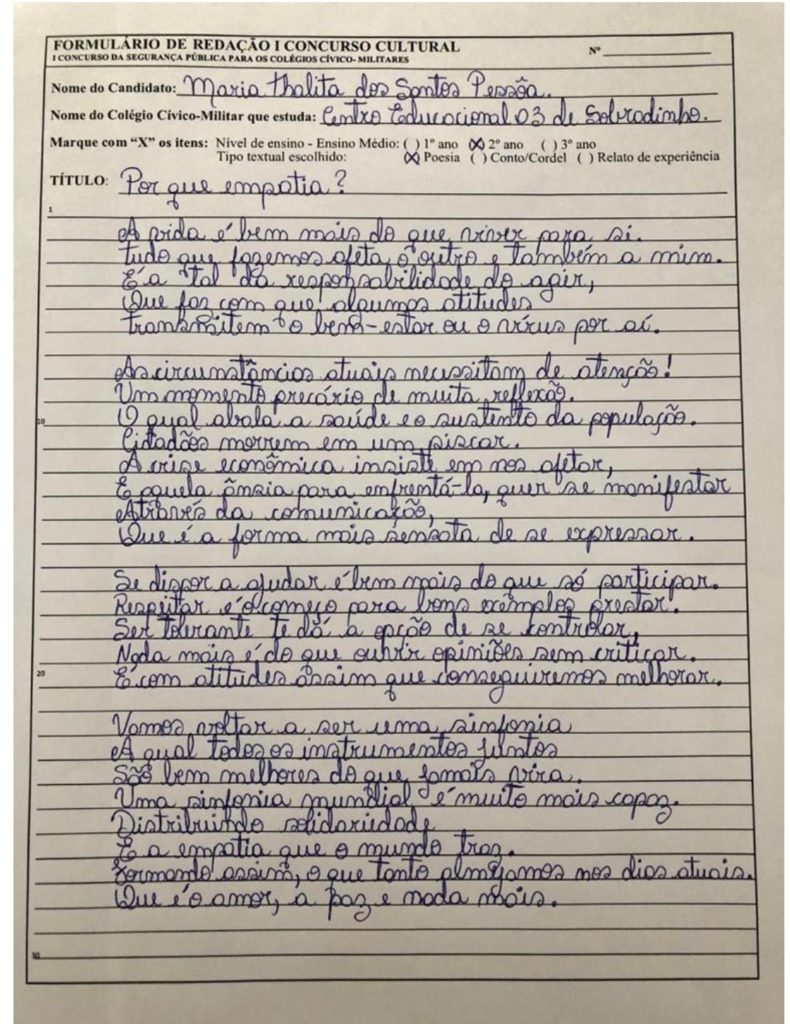 FORMULÁRIO DE REDAÇÃO I CONCURSO CULTURAL
I CONCURSO DA SEGURANÇA PÚBLICA PARA OS COLÉGIOS CÍVICO- MILITARES
Nº
Nome do Candidato: Maria Thalita dos Santos Pessôa.
Nome do Colégio Cívico-Militar que estuda: Centro Educacional 03 de Sobradinho.
Marque com "X" os itens: Nível de ensino - Ensino Médio: ( ) 1º ano (X) 2º ano ( ) 3º ano
Tipo textual escolhido: (X) Poesia ( ) Conto/Cordel ( ) Relato de experiência
TÍTULO: Por que empatia?
1
A vida é bem mais do que viver para si.
Tudo que fazemos afeta o outro e também a mim.
É a "tal" da responsabilidade do agir,
Que faz com que algumas atitudes
transmitem o bem-estar ou o vírus por aí.
As circunstâncias atuais necessitam de atenção!
Um momento precário de muita reflexão.
10
O qual abala a saúde e o sustento da população.
Cidadãos morrem em um piscar.
A crise econômica insiste em nos afetar,
E aquela ânsia para enfrentá-la, quer se manifestar
Através da comunicação,
Que é a forma mais sensata de se expressar.
Se dispor a ajudar é bem mais do que só participar.
Respeitar é o começo para bons exemplos prestar.
Ser tolerante te dá a opção de se controlar,
Nada mais é do que ouvir opiniões sem criticar.
20
É com atitudes assim que conseguiremos melhorar.
Vamos voltar a ser uma sinfonia
A qual todos os instrumentos juntos
São bem melhores do que jamais vira.
Uma sinfonia mundial é muito mais capaz.
Distribuindo solidariedade
E a empatia que o mundo traz.
Formando assim, o que tanto almejamos nos dias atuais.
Que é o amor, a paz e nada mais.
30